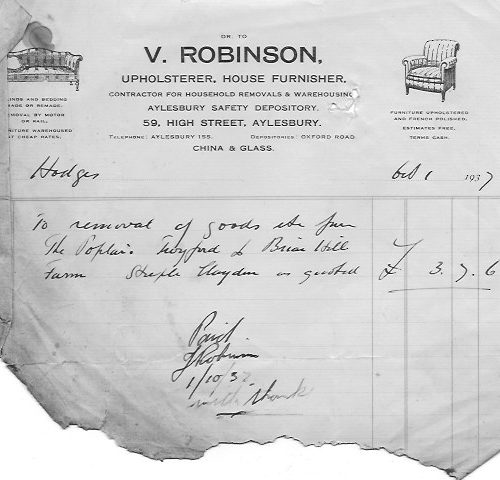 DR. TO
V. ROBINSON,
UPHOLSTERER, HOUSE FURNISHER,
CONTRACTOR FOR HOUSEHOLD REMOVALS & WAREHOUSING
AYLESBURY SAFETY DEPOSITORY.
59, HIGH STREET, AYLESBURY.
TELEPHONE: AYLESBURY 155. DEPOSITORIES: OXFORD ROAD
CHINA & GLASS.
INDS AND BEDDING
ADE OR REMADE.
MOVAL BY MOTOR
OR RAIL.
NITURE WAREHOUSED
AT CHEAP RATES.
FURNITURE UPHOLSTERED
AND FRENCH POLISHED.
ESTIMATES FREE.
TERMS CASH.
Hodges Oct 1 1937
To removal of goods etc from
The Poplars Twyford to Briar Hill
Farm Steeple Claydon as quoted £ 3. 7. 6
Paid
1/10/37
with thanks